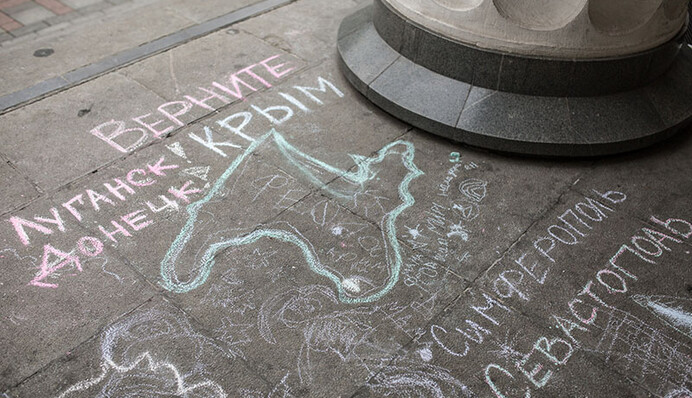 ВЕРНИТЕ
КРЫМ!
ЛУГАНСК!
ДОНЕЦК!
СИМФЕРОПОЛЬ
СЕВАСТОПОЛЬ